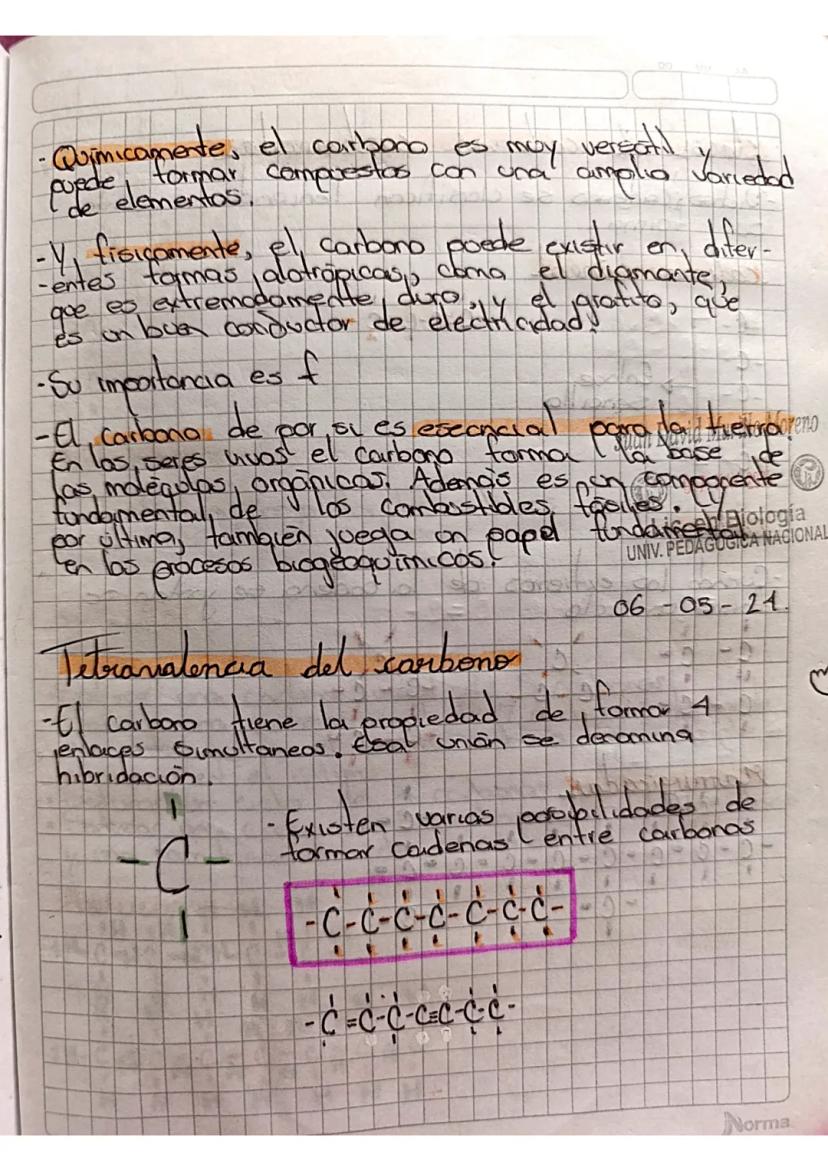 - Químicamente, el carbono es muy versátil y
puede formar compuestos con una amplia variedad
de elementos.
- Y, físicamente, el carbono puede existir en difer-
-entes formas alotrópicas, como el diamante,
que es extremadamente duro, y el grafito, que
es un buen conductor de electricidad.
- Su importancia es f
- El carbono de por si es esencial para la tierra.
En los seres vivos el carbono forma la base de
las moléculas orgánicas. Además es un componente
fundamental de los combustibles fósiles. Y
por último, también juega un papel fundamental
en los procesos biogeoquímicos.
Biología
UNIV. PEDAGÓGICA NACIONAL
06-05-24.
Tetravalencia del carbono
- El carbono tiene la propiedad de formar 4
enlaces simultaneos. Esal unión se denomina
hibridación.
- C -
- Existen varias posibilidades de
formar cadenas entre carbonos
-C-C-C-C-C-C-C-
-C=C-C-C≡C-C-C-
Norma